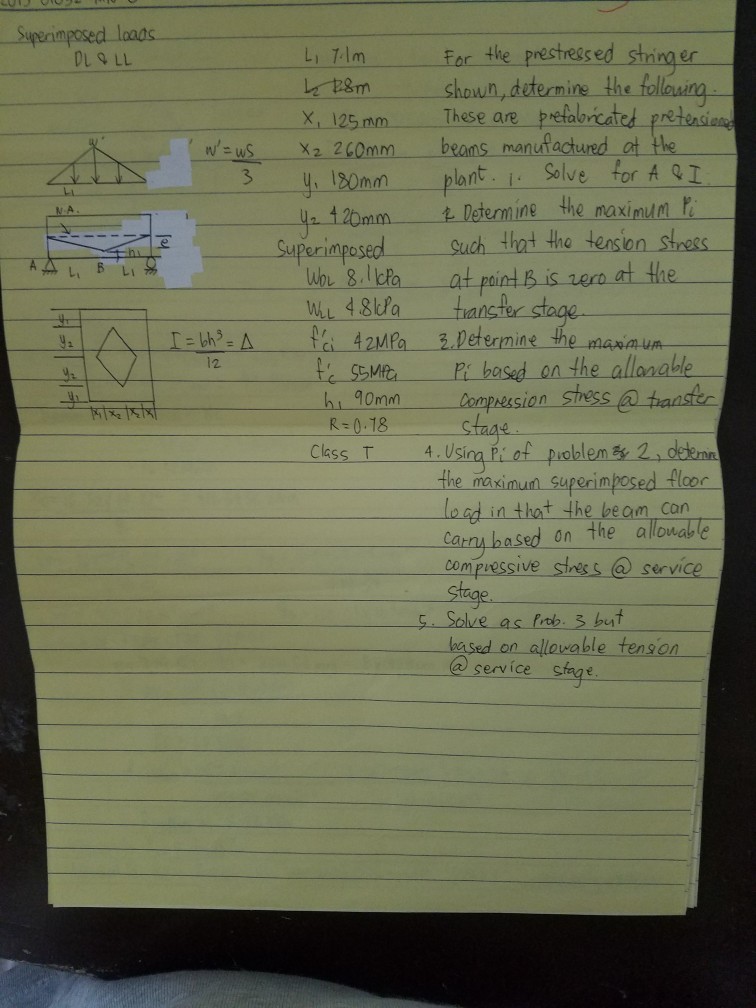 Superimposed loads
DL & LL
W'
W' = WS
3
L1
N.A.
e
h1
A L1 B L1
y1
y2
y2
y1
x1 x2 x2 x1
I = bh³ = Δ
12
L1 7.1m
L2 1.28m
X1 125mm
X2 260mm
y1 180mm
y2 420mm
Superimposed
WDL 8.1kPa
WLL 4.8kPa
f'ci 42MPa
f'c 55MPa
h1 90mm
R = 0.78
Class T
For the prestressed stringer
shown, determine the following.
These are prefabricated pretensioned
beams manufactured at the
plant. 1. Solve for A & I.
2. Determine the maximum Pi
such that the tension stress
at point B is zero at the
transfer stage.
3. Determine the maximum
Pi based on the allowable
compression stress @ transfer
stage.
4. Using Pi of problem 2, determine
the maximum superimposed floor
load in that the beam can
carry based on the allowable
compressive stress @ service
stage.
5. Solve as Prob. 3 but
based on allowable tension
@ service stage.